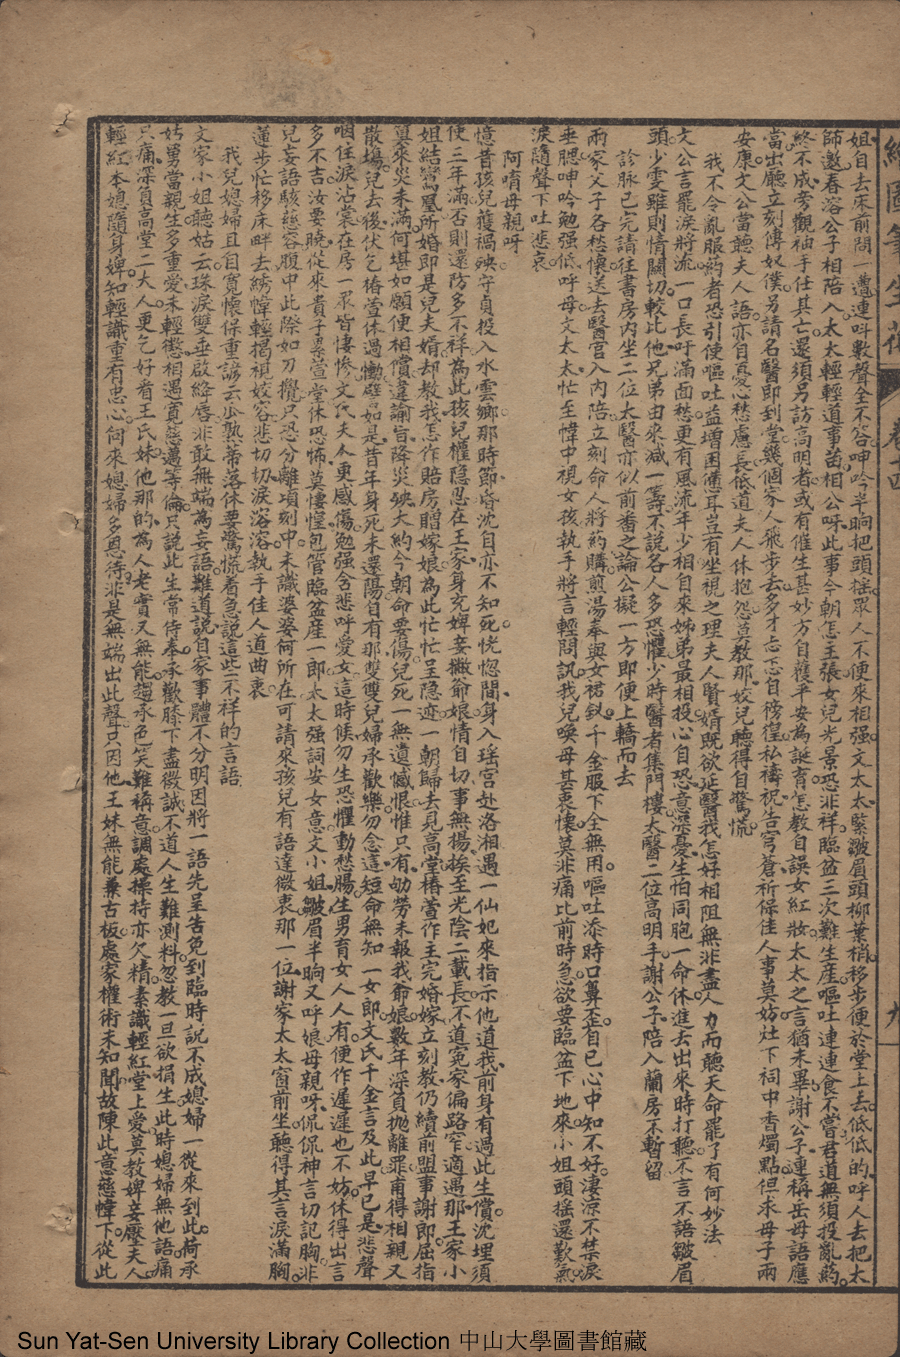 繪圖筆生花 卷十四 九
姐自去床前問一遭連呌數聲全不答呻吟半晌把頭摇眾人不便來相强文太太緊皺眉頭柳葉梢移步便於堂上去低低的呼人去把太
師邀春溶公子相陪入太太輕輕道事苗相公呀此事今朝怎主張女兒光景恐非祥臨盆三次難生産嘔吐連連食不嘗君道無須投亂葯
終不成旁觀袖手任其亡還須另訪高明者或有催生甚妙方自護平安為誕育怎教自誤女紅妝太太之言猶未畢謝公子連稱岳母語應
當出廳立刻傳奴僕另請名醫即到堂幾個家人飛步去多才忐忑自徬徨私禱祝告穹蒼祈保佳人事莫妨灶下祠中香燭點但求母子兩
安康文公當聽夫人語亦自憂心愁慮長低道夫人休抱怨莫教那姣兒聽得自驚慌
我不令亂服葯者恐引使嘔吐益增困憊耳豈有坐視之理夫人賢婿既欲延醫我怎好相阻無非盡人力而聽天命罷了有何妙法
文公言罷淚將流一口長吁滿面愁更有風流年少相自來姊弟最相投心自恐意深憂生怕同胞一命休進去出來時打聽不言不語皺眉
頭少雯雖則情關切較比他兄弟由來減一籌不說各人多恐懼少時醫者集門樓太醫二位高明手謝公子陪入蘭房不暫留
診脉已完請往書房內坐二位太醫亦似前番之論公擬一方即便上轎而去
兩家父子各愁懷送去醫官入內陪立刻命人將葯購煎湯奉與女裙釵千金服下全無用嘔吐添時口算歪自已心中知不好淒凉不禁淚
垂腮呻吟勉强低呼母文太太忙至幃中視女孩執手將言輕問訊我兒喚母甚衷懷莫非痛比前時急欲要臨盆下地來小姐頭摇還歎氣
淚隨聲下吐悲哀
阿唷母親呀
憶昔孩兒獲禍殃守貞投入水雲鄉那時節昏沈自亦不知死恍惚間身入瑶宫处洛湘遇一仙妃來指示他道我前身有過此生償沈埋須
便三年滿否則還防多不祥為此孩兒懼隱忍在王家身充婢妾撇爺娘情自切事無揚挨至光陰二載長不道冤家偏路窄適遇那王家小
姐結鸞凰所婚即是兒夫婿却教我怎作賠房贈嫁娘為此忙忙呈隐迹一朝歸去見高堂椿萱作主完婚嫁立刻教仍續前盟事謝郎屈指
算來災未滿何堪如願便相償違諭旨降災殃大約今朝命要傷兒死一無遺憾恨惟只有劬劳未報我爺娘數年深負抛離罪甫得相親又
散塲兒去後伏乞椿萱休過慟譬茹是昔年身死未還陽自有那雙雙兒婦承歡樂勿念這短命無知一女郎文氏千金言及此早已是悲聲
咽住淚沾裳在房一眾皆悽慘文氏夫人更感傷勉强含悲呼愛女這時候勿生恐懼動愁腸生男育女人人有便作遲遲也不妨休得出言
多不吉汝要曉從來貴子累萱堂休恐怖莫慞惶包管臨盆産一郎太太强詞安女意文小姐皺眉半晌又呼娘母親呀侃侃神言切記胸非
兒妄語駭慈容腹中此際如刀攪只恐分離頃刻中未識婆婆何所在可請來孩兒有語達微衷那一位謝家太太窗前坐聽得其言淚滿胸
蓮步忙移床畔去綉幃輕揭視姣容悲切切淚溶溶執手佳人道曲衷
我兒媳婦且自寛懷保重諺云瓜熟蒂落休要驚慌着急說這些不祥的言語
文家小姐聽姑云珠淚雙垂啟絳唇非敢無端為妄語難道說自家事體不分明因將一語先呈告免到臨時説不成媳婦一從來到此荷承
姑舅當親生多重愛未輕懲相遇寛慈邁等倫只説此生常侍奉承歡膝下盡微誠不道人生難測料忽教一旦欲捐生此時媳婦無他語痛
只痛深負高堂二大人更乞好看王氏妹他那的為人老實又無能趨承色笑難稱意調處操持亦欠精素識輕紅堂上愛莫教婢妾壓夫人
輕紅本媳隨身婢知輕識重有忠心向來媳婦多恩待非是無端出此聲只因他王妹無能兼古板處家權術未知聞故陳此意慈幃下從此
Sun Yat-Sen University Library Collection 中山大學圖書館藏